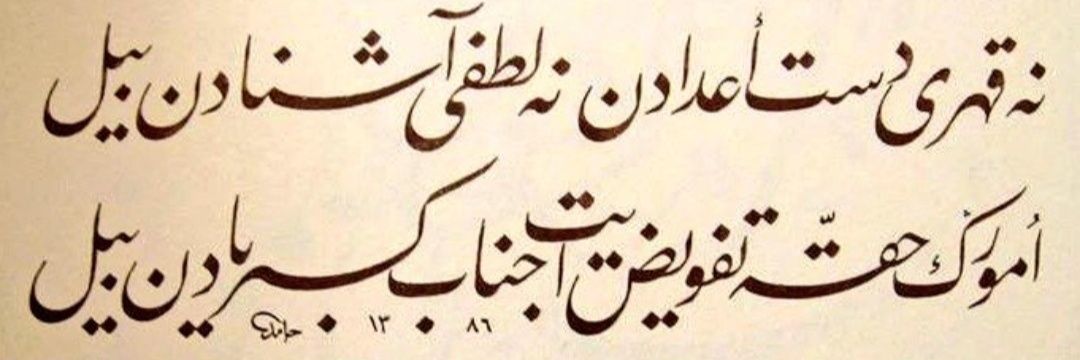 نه قهری دست أعدادن نه لطفی آشنادن بیل
اُمورڭ حقّه تفویض ایت جناب کبریادن بیل
حامد ١٣٨٦